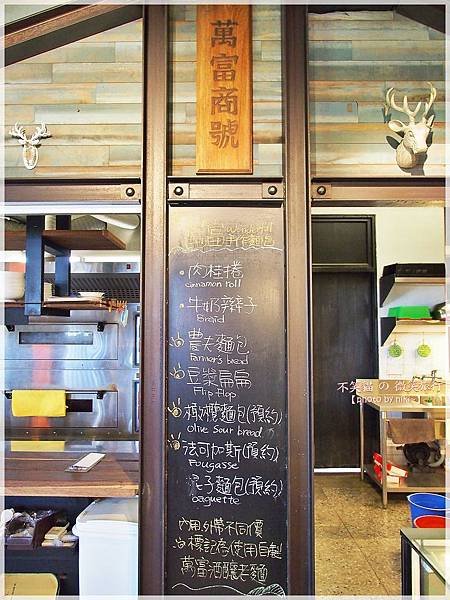 萬富商號
Wonderful
肉桂捲
cinnamon roll
牛奶辮子
Braid
農夫麵包
Farmer's bread
豆漿扁扁
Flip flop
橄欖麵包(預約)
olive sour bread
法可加斯(預約)
Fougasse
棍子麵包(預約)
baguette
內用.外帶不同價
標記為使用自製
萬富酒釀老麵
不笑當の微笑旅行
【photo by nikie】